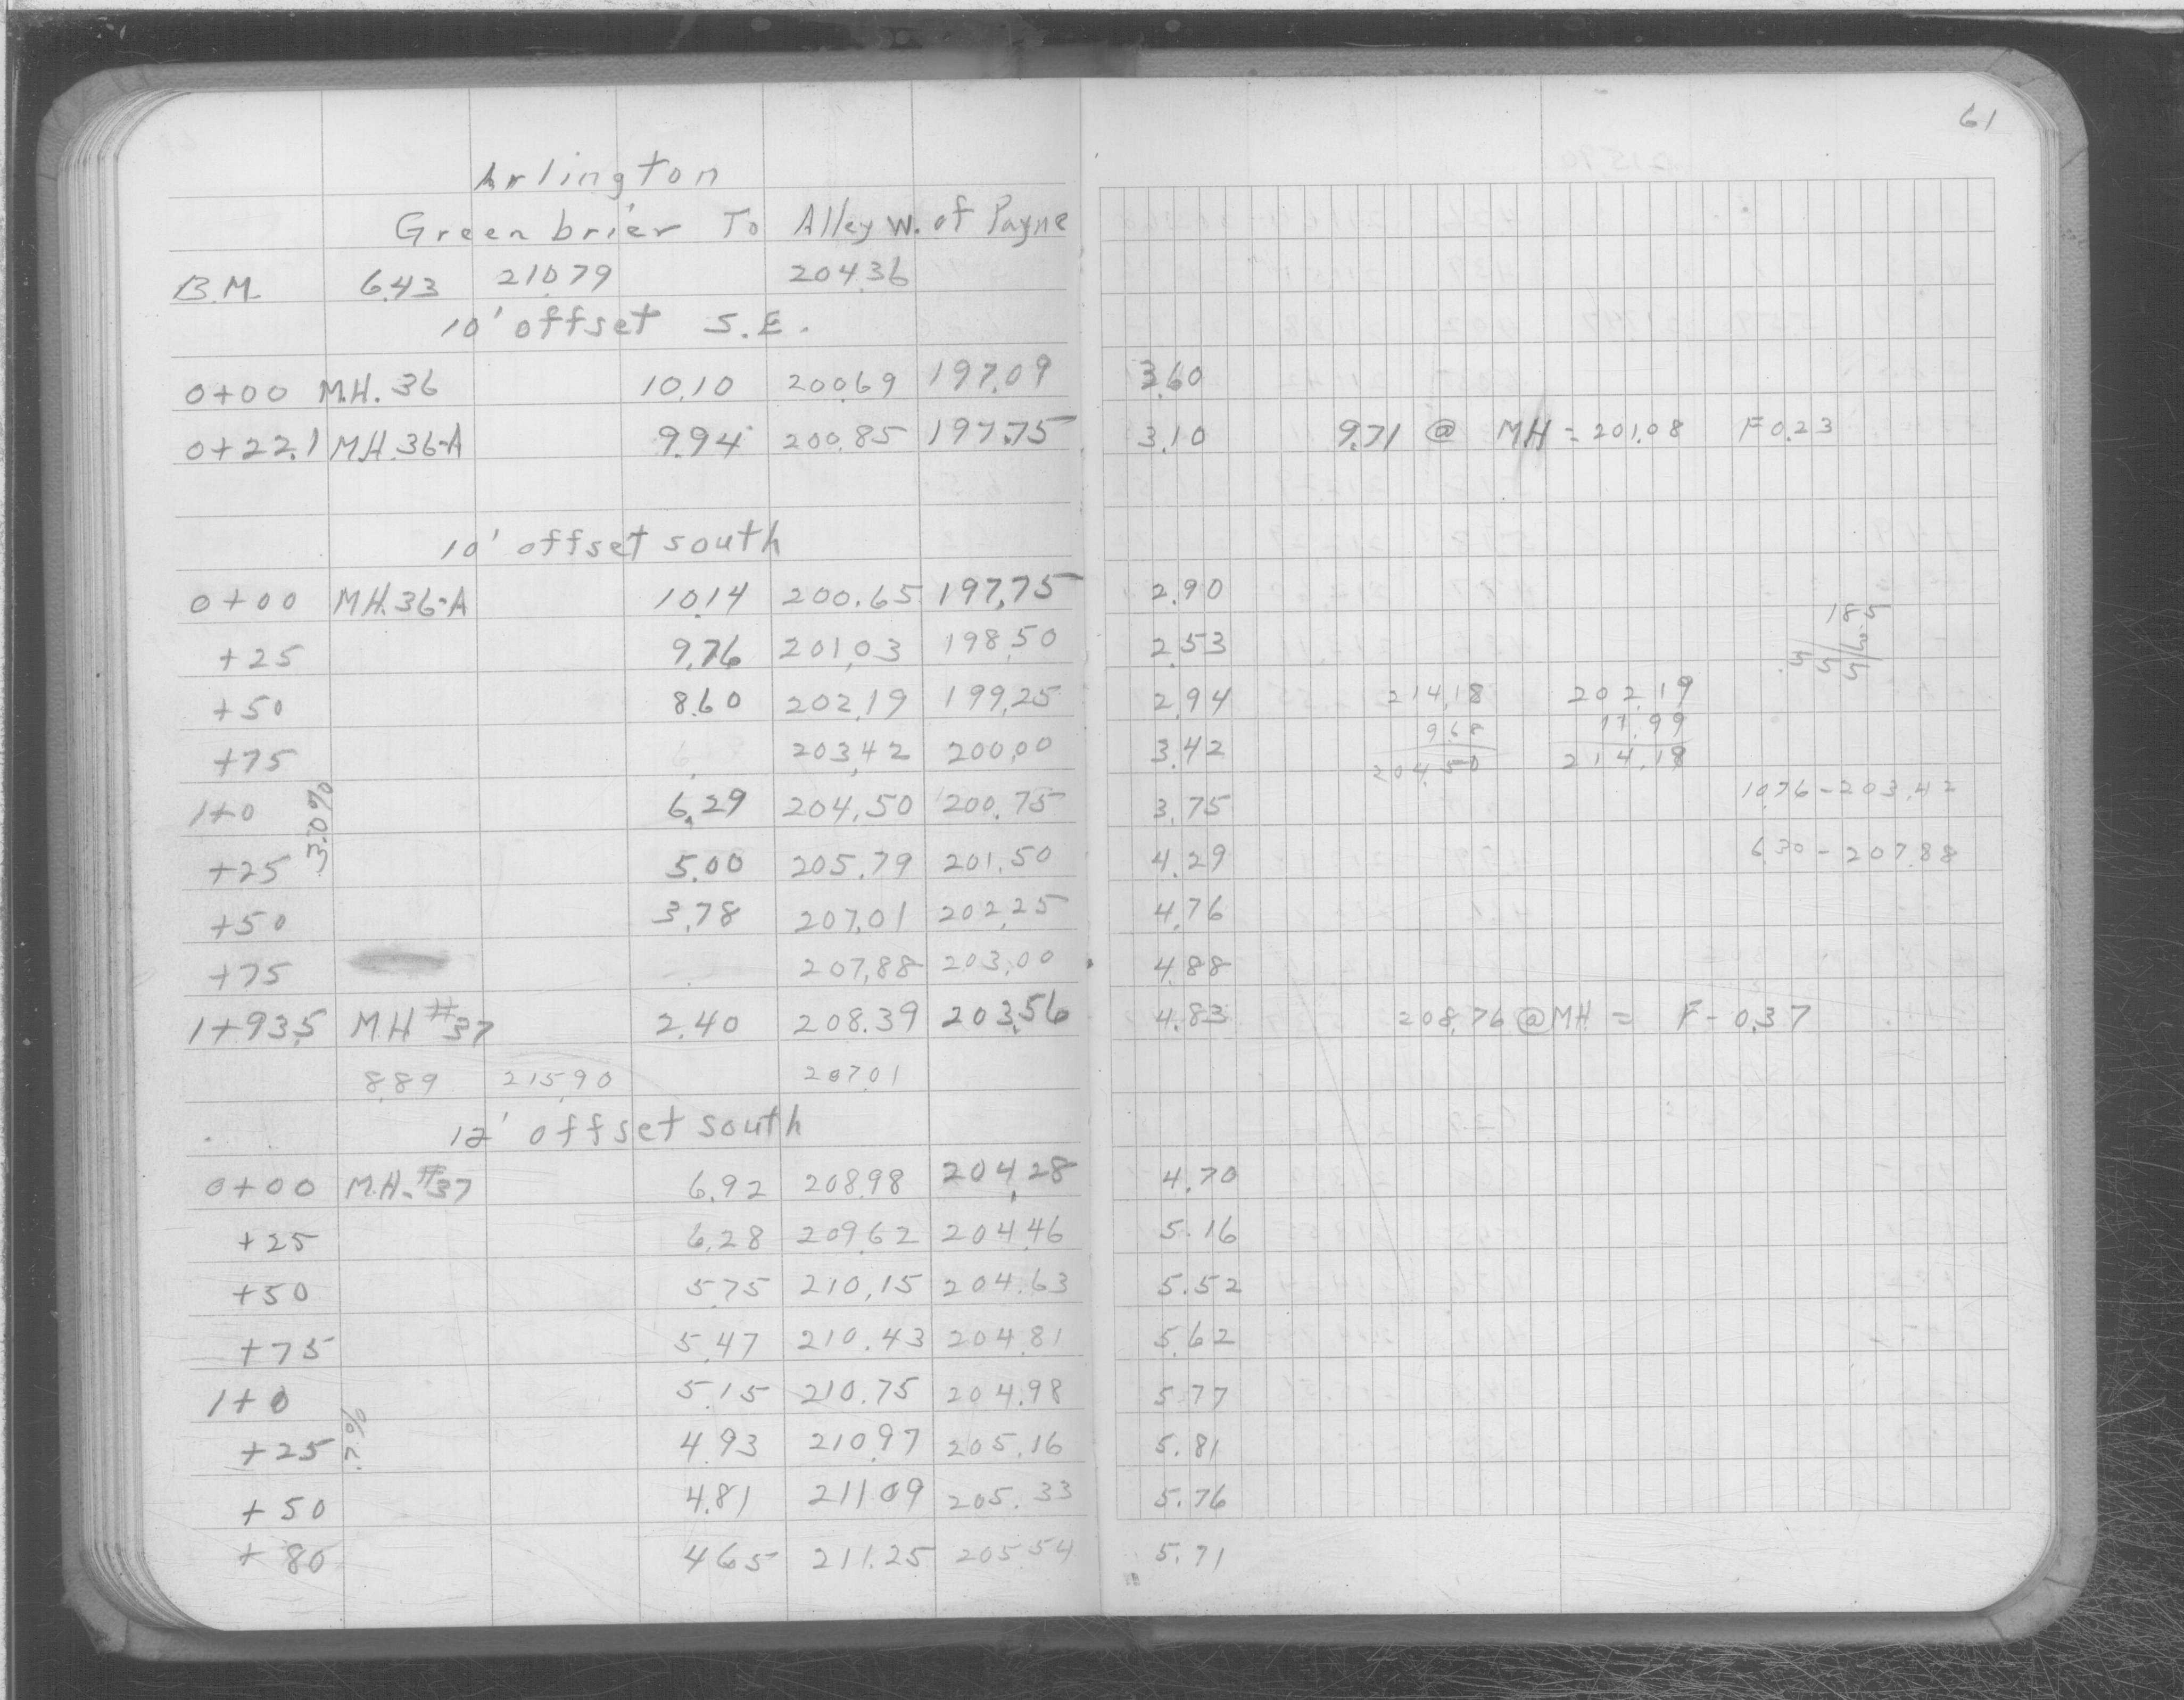 61
Arlington
Greenbrier To Alley W. of Payne
B.M. 6.43 210.79 204.36
10' offset S.E.
0+00 M.H. 36 10.10 200.69 197.09 3.60
0+22.1 M.H. 36-A 9.94 200.85 197.75 3.10 9.71 @ MH = 201.08 F 0.23
10' offset south
0+00 M.H. 36-A 10.14 200.65 197.75 2.90
185
+25 9.76 201.03 198.50 2.53
+50 8.60 202.19 199.25 2.94 214.18 202.19
9.68 11.99
+75 203.42 200.00 3.42
204.50 214.18
10.76 - 203.42
1+0 6.29 204.50 200.75 3.75
3.0%
+25 5.00 205.79 201.50 4.29 6.30 - 207.88
+50 3.78 207.01 202.25 4.76
+75 207.88 203.00 4.88
1+93.5 M.H #37 2.40 208.39 203.56 4.83 208.76 @ MH = F- 0.37
8.89 215.90 207.01
12' offset south
0+00 M.H. #37 6.92 208.98 204.28 4.70
+25 6.28 209.62 204.46 5.16
+50 5.75 210.15 204.63 5.52
+75 5.47 210.43 204.81 5.62
1+0 5.15 210.75 204.98 5.77
+25 .7% 4.93 210.97 205.16 5.81
+50 4.81 211.09 205.33 5.76
+80 4.65 211.25 205.54 5.71